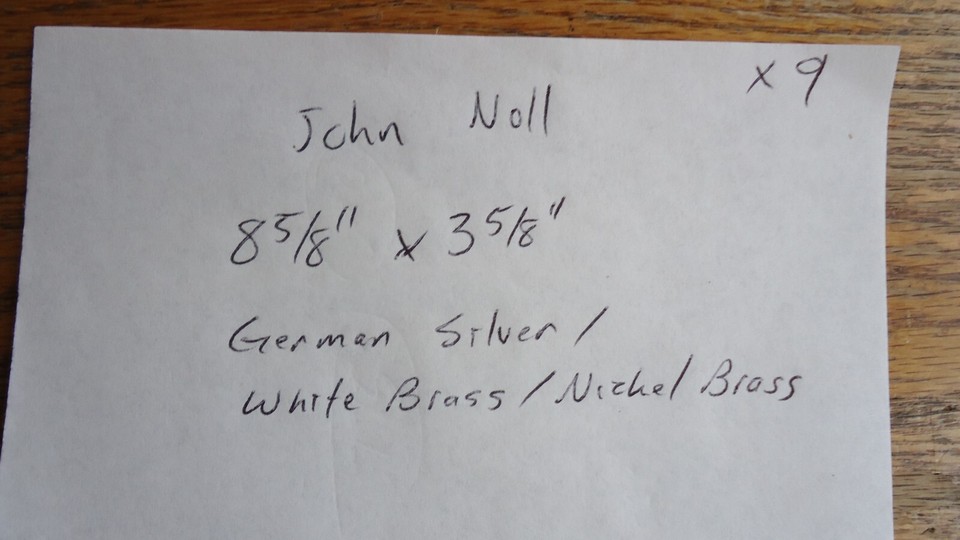 x 9
John Noll
8 5/8" x 3 5/8"
German Silver /
White Brass / Nickel Brass